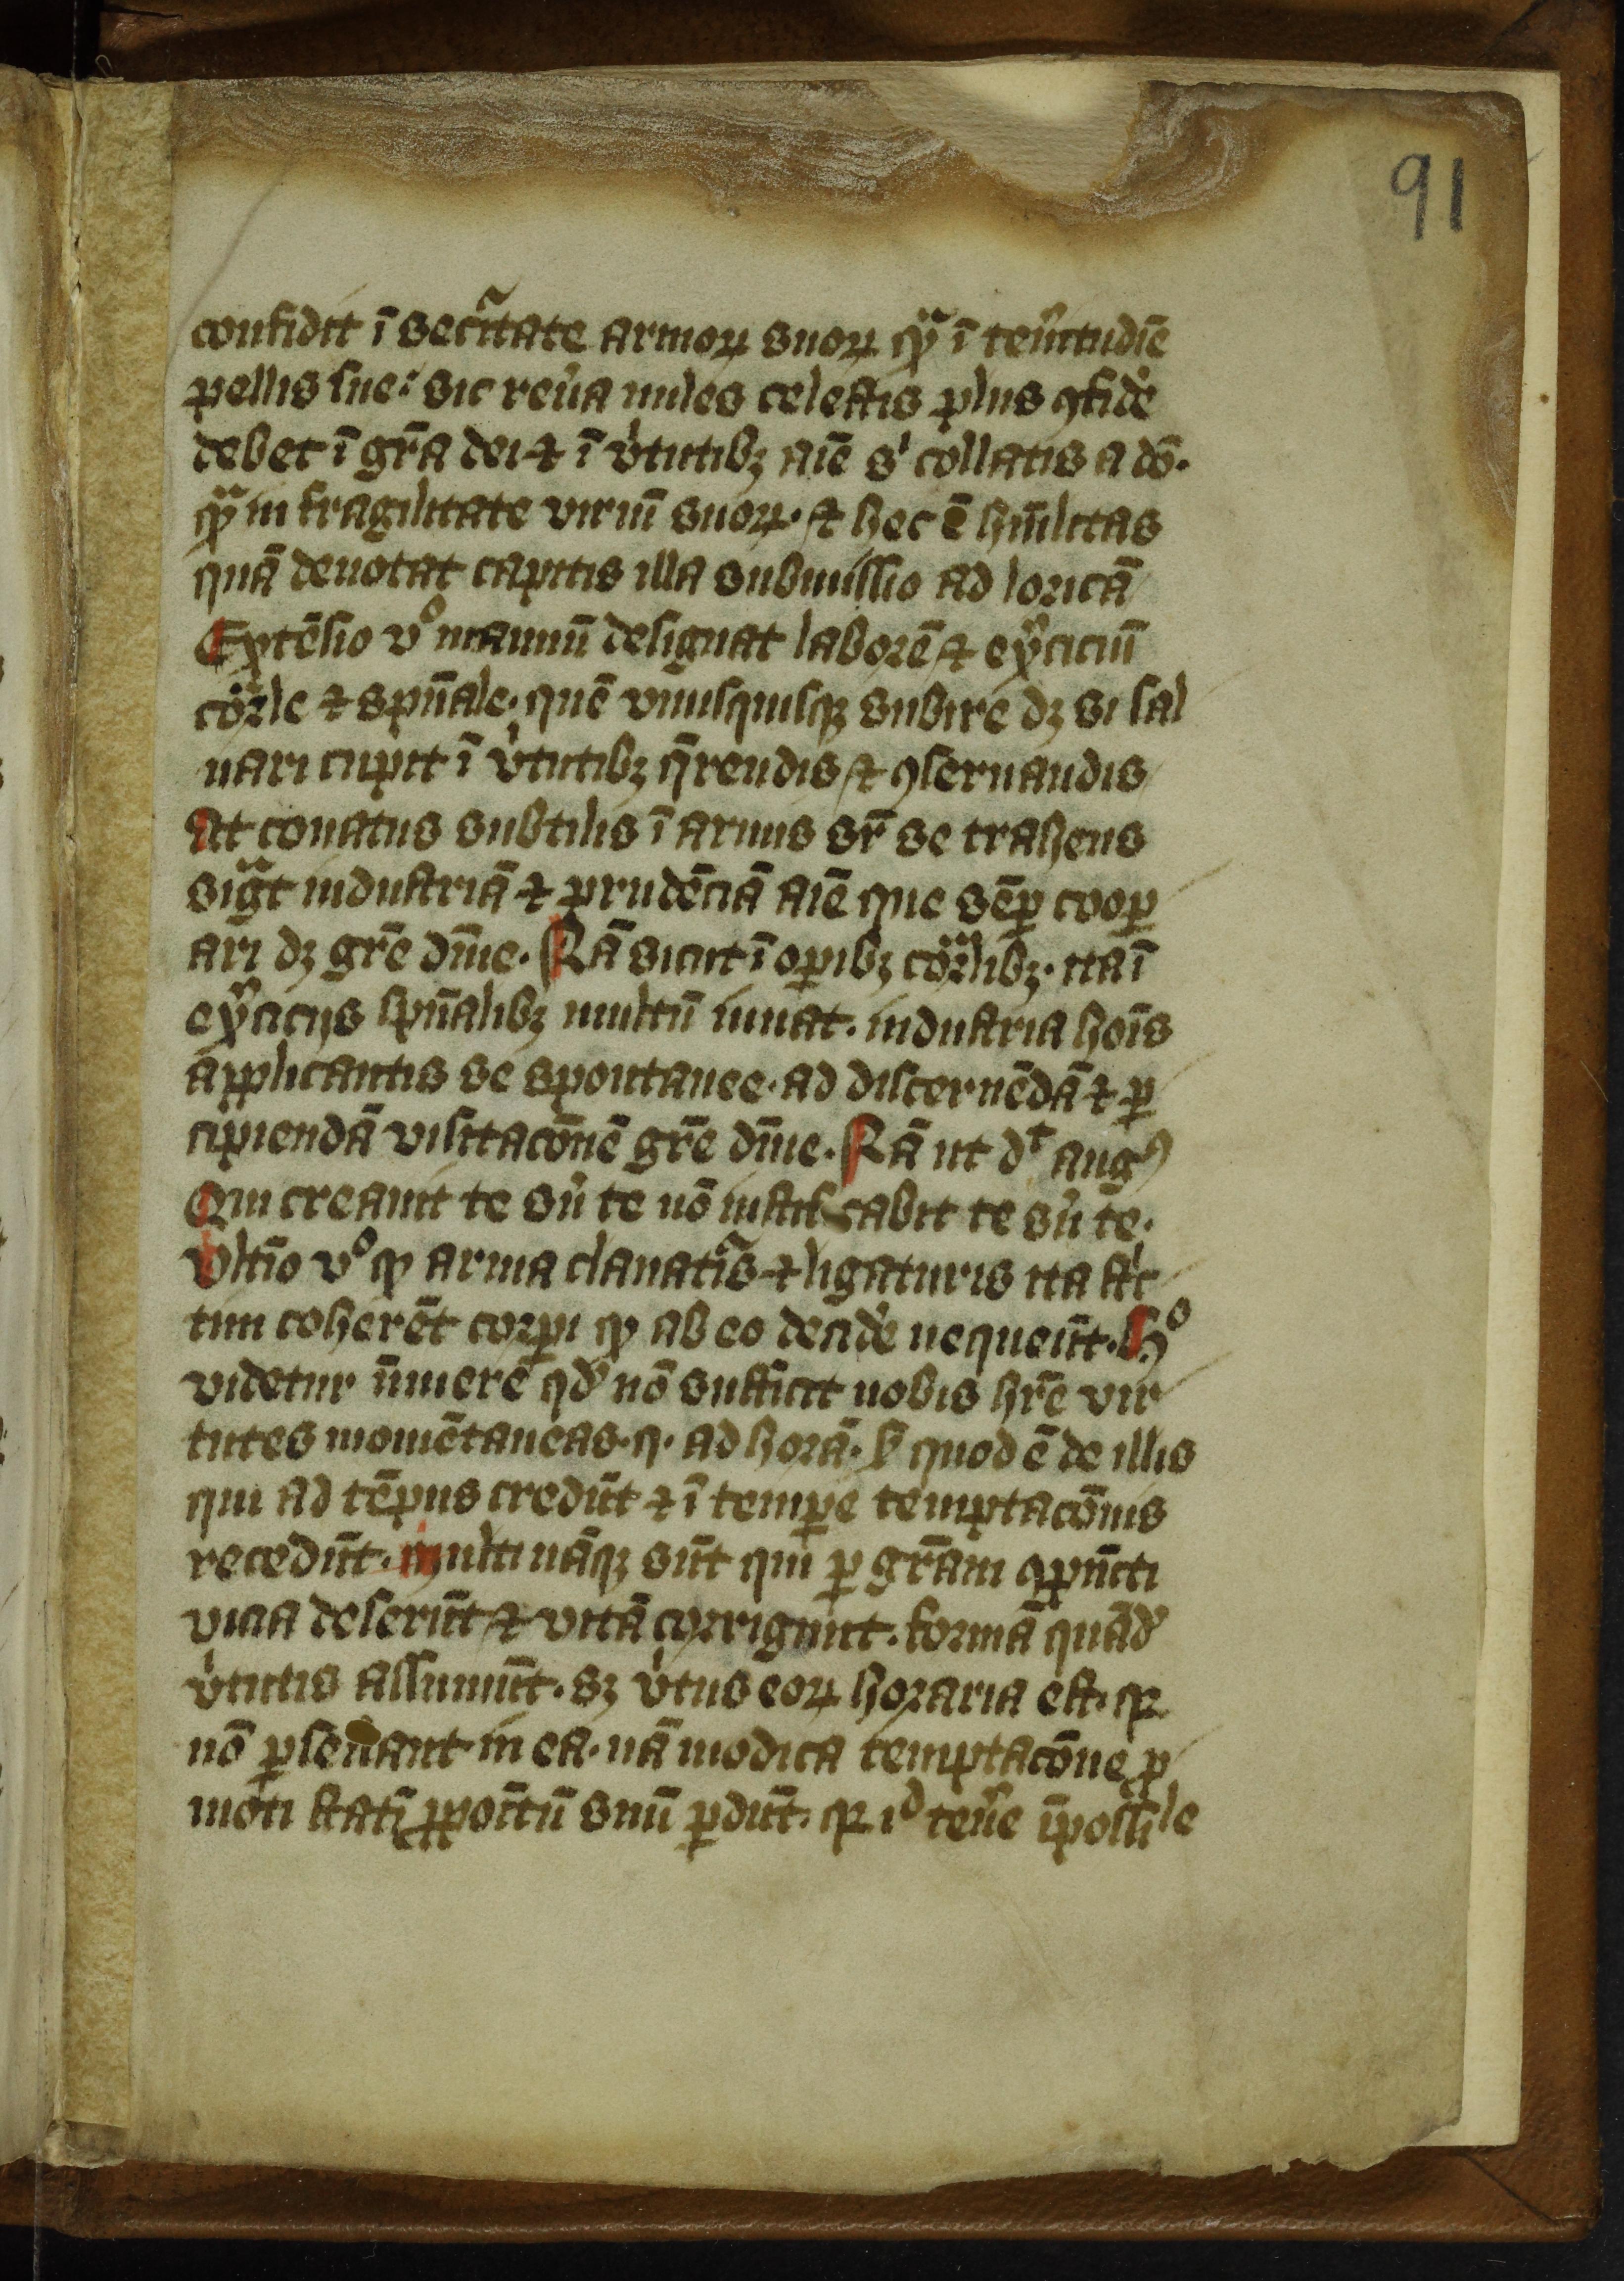 91
confidit ī sec͛itate armoꝝ suoꝝ qͣ̈ ī ten͛itudīe
pellis sue: sic reu͛a miles celestis plus ꝯfide͛
debet ī gr̄a dei ⁊ ī v͛tutibꝫ aīe sͥ collatis a dō.
qͣ̈ in fragilitate viriū suoꝝ. ⁊ hec ē hūilitas
quā denotat capitis illa submissio ad loricā
Extēsio vͦ manuū designat laborē ⁊ ex͛ciciū
cor͛ꝑle ⁊ spūale. quē vnusquisqꝫ subire dꝫ si sal
uari cupit ī v͛tutibꝫ q̄rendis ⁊ ꝯseruandis
At conatus subtilis ī armis sr̄ se trahens
sigͣ̈t industriā ⁊ prudēciā aīe que sēꝑ cooꝑ
ari dꝫ gr̄e dīnie. Nā sicut ī oꝑibꝫ cor͛libꝫ. ita ī
ex͛cicijs spūalibꝫ multū iuuat. industria hoīs
applicantis se spontanee. ad discernēdā ⁊ ꝑ
cipiendā visitacōnē gr̄e dīnie. Nā ut dͭ augꝰ
Qui creauit te sn͛ te nō iustificabit te sn͛ te.
Vltīo vͦ ꝙ arma clauatͣis ⁊ ligaturis ita stͥc
tim coherēt corꝑi ꝙ ab eo decide͛ nequeūt. hͦ
videtur īnuere qđ nō sufficit nobis hr̄e vir
tutes momētaneas. q. ad horā. sͫ quod ē de illis
qui ad tēpus credūt ⁊ ī temꝑe temptacōnis
recedūt. multi nāqꝫ sūt qui ꝑ gr̄am ꝯpūcti
vicia deserūt ⁊ vitā corrigunt. formā quādā
v͛tutis assumūt. sꝫ v͛tus eoꝝ horaria est. qꝛ
nō ꝑseu͛ant in ea. nā modica temptacōne ꝓ
moti statī ꝓpoītū suū ꝑdūt. qꝛ iᵈ tene͛ īpossiˡᵉ